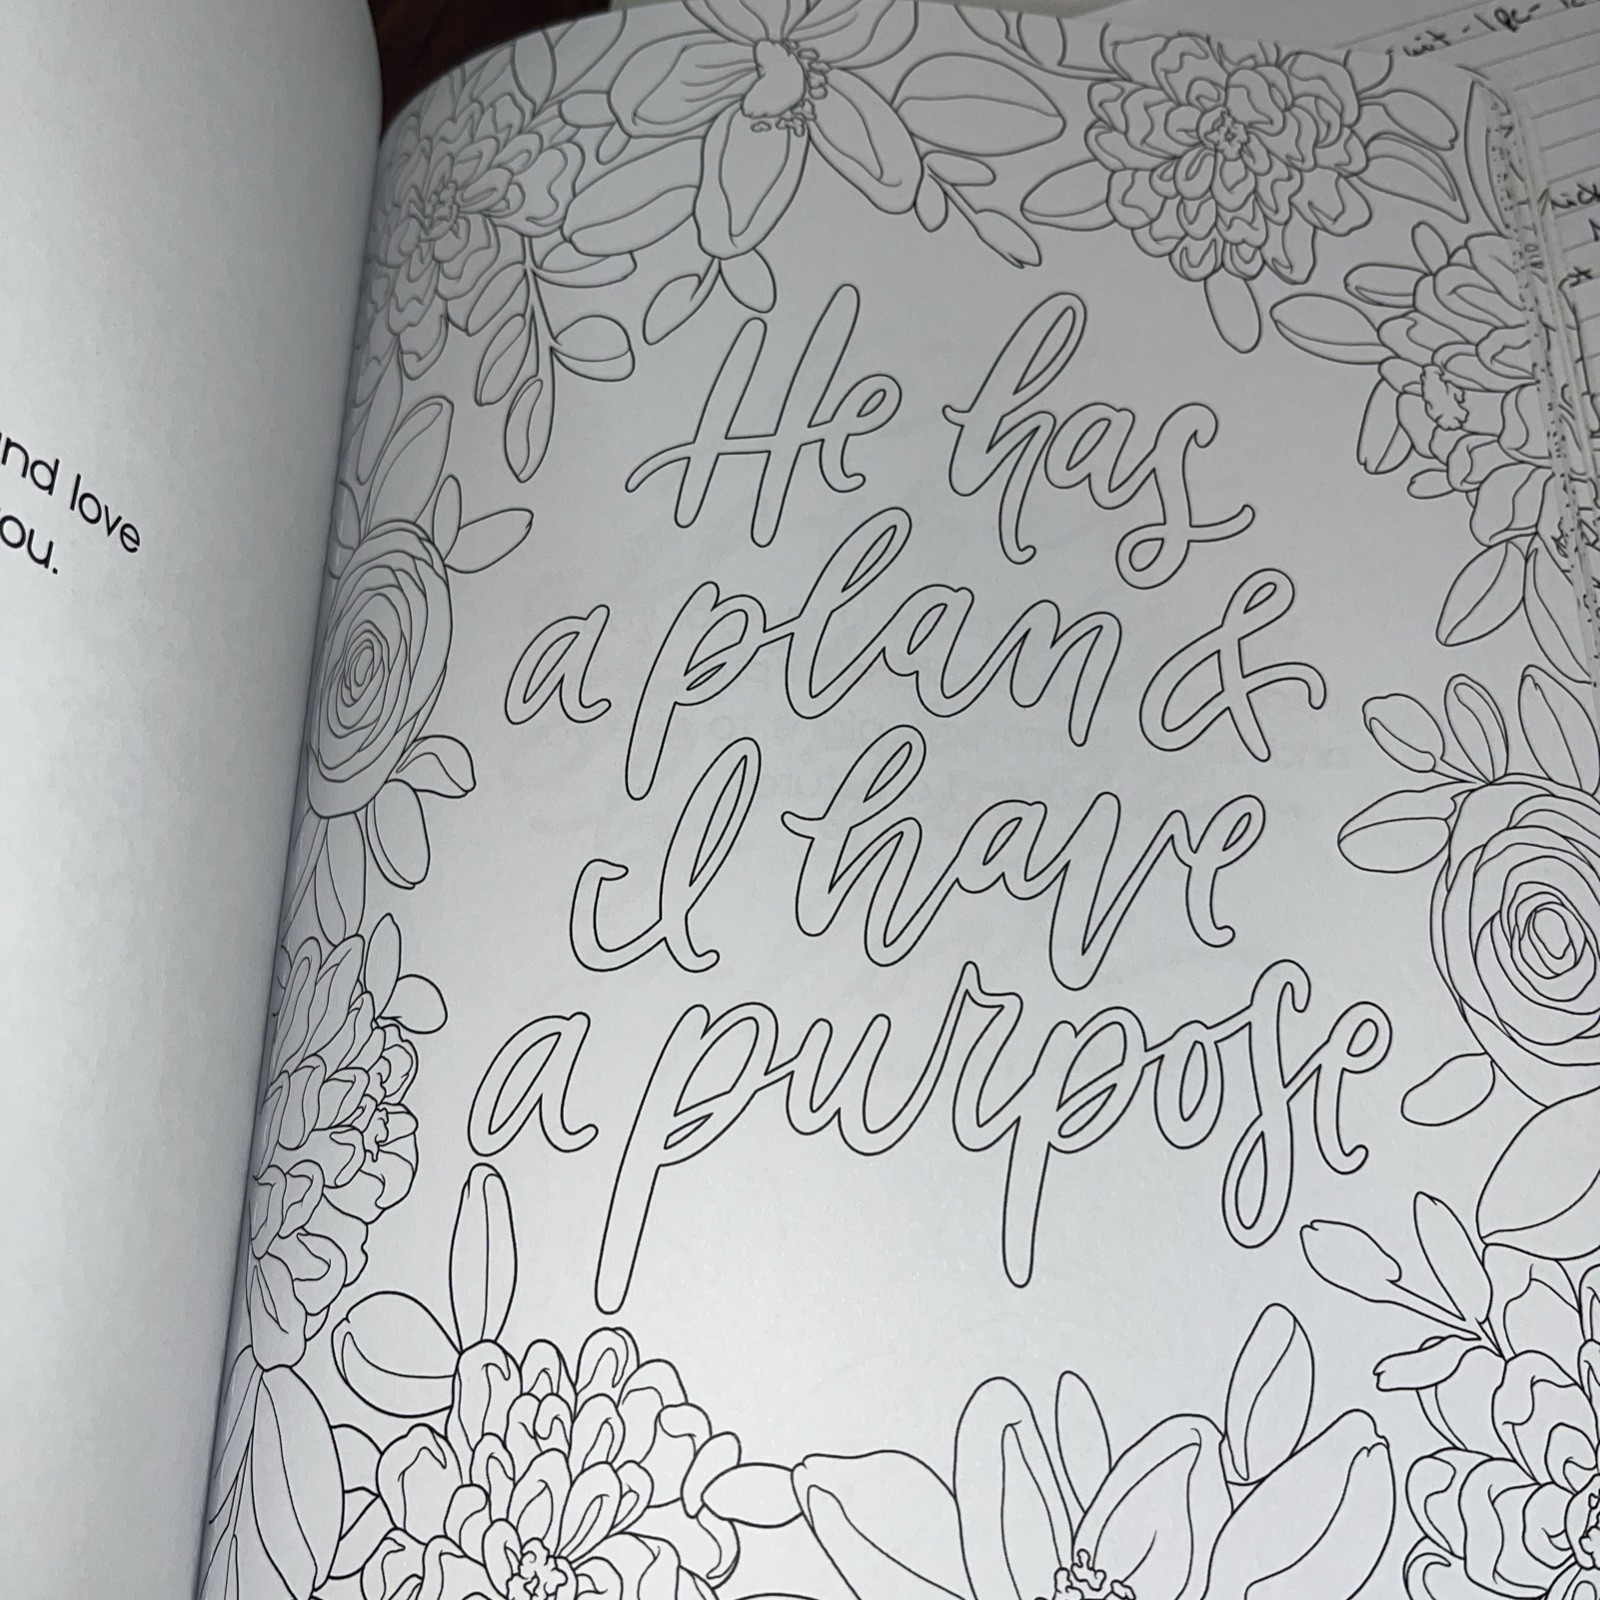 and love
you.
He has
a plan &
I have
a purpose